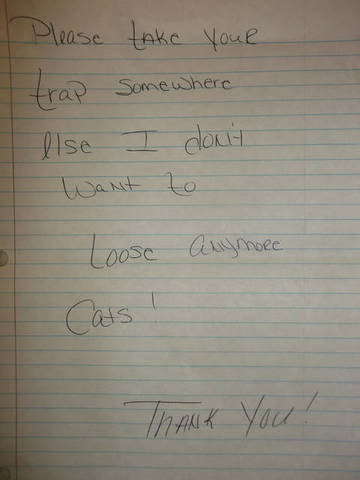 Please take your
trap somewhere
else I don't
want to
loose anymore
Cats!
Thank You!